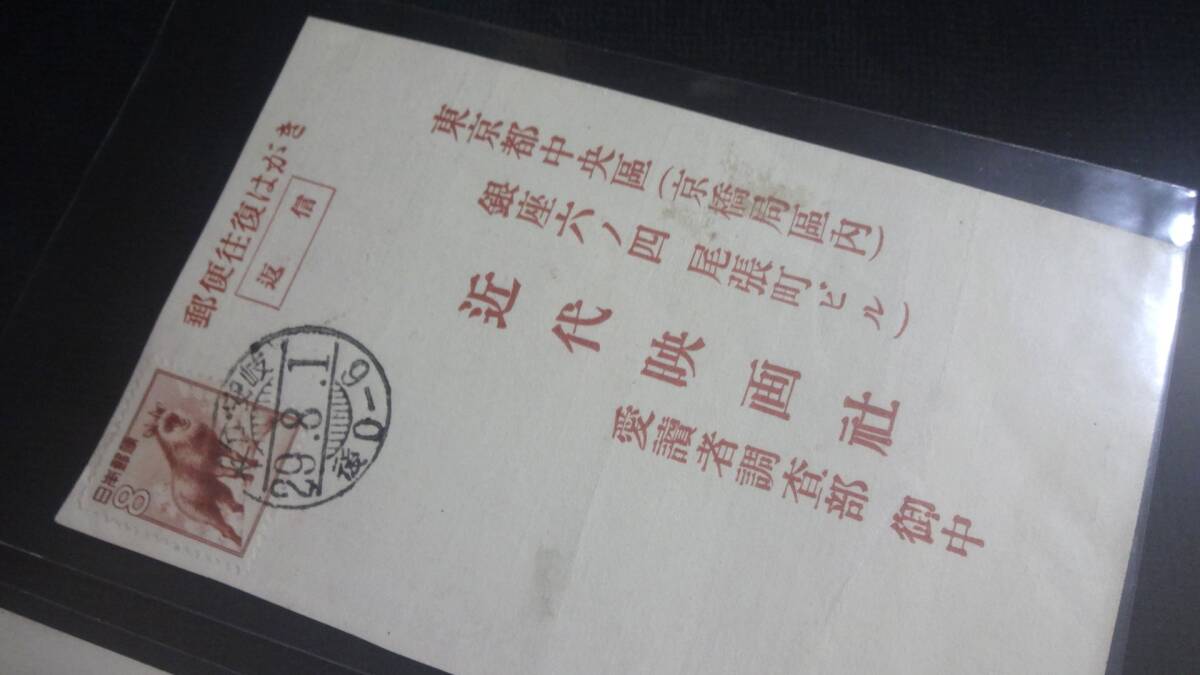 郵便往復はがき
返信
東京都中央區(京橋局區内)
銀座六ノ四 尾張町ビル)
近代映画社
愛讀者調査部 御中
日本郵便
8
29.8.1
0-6